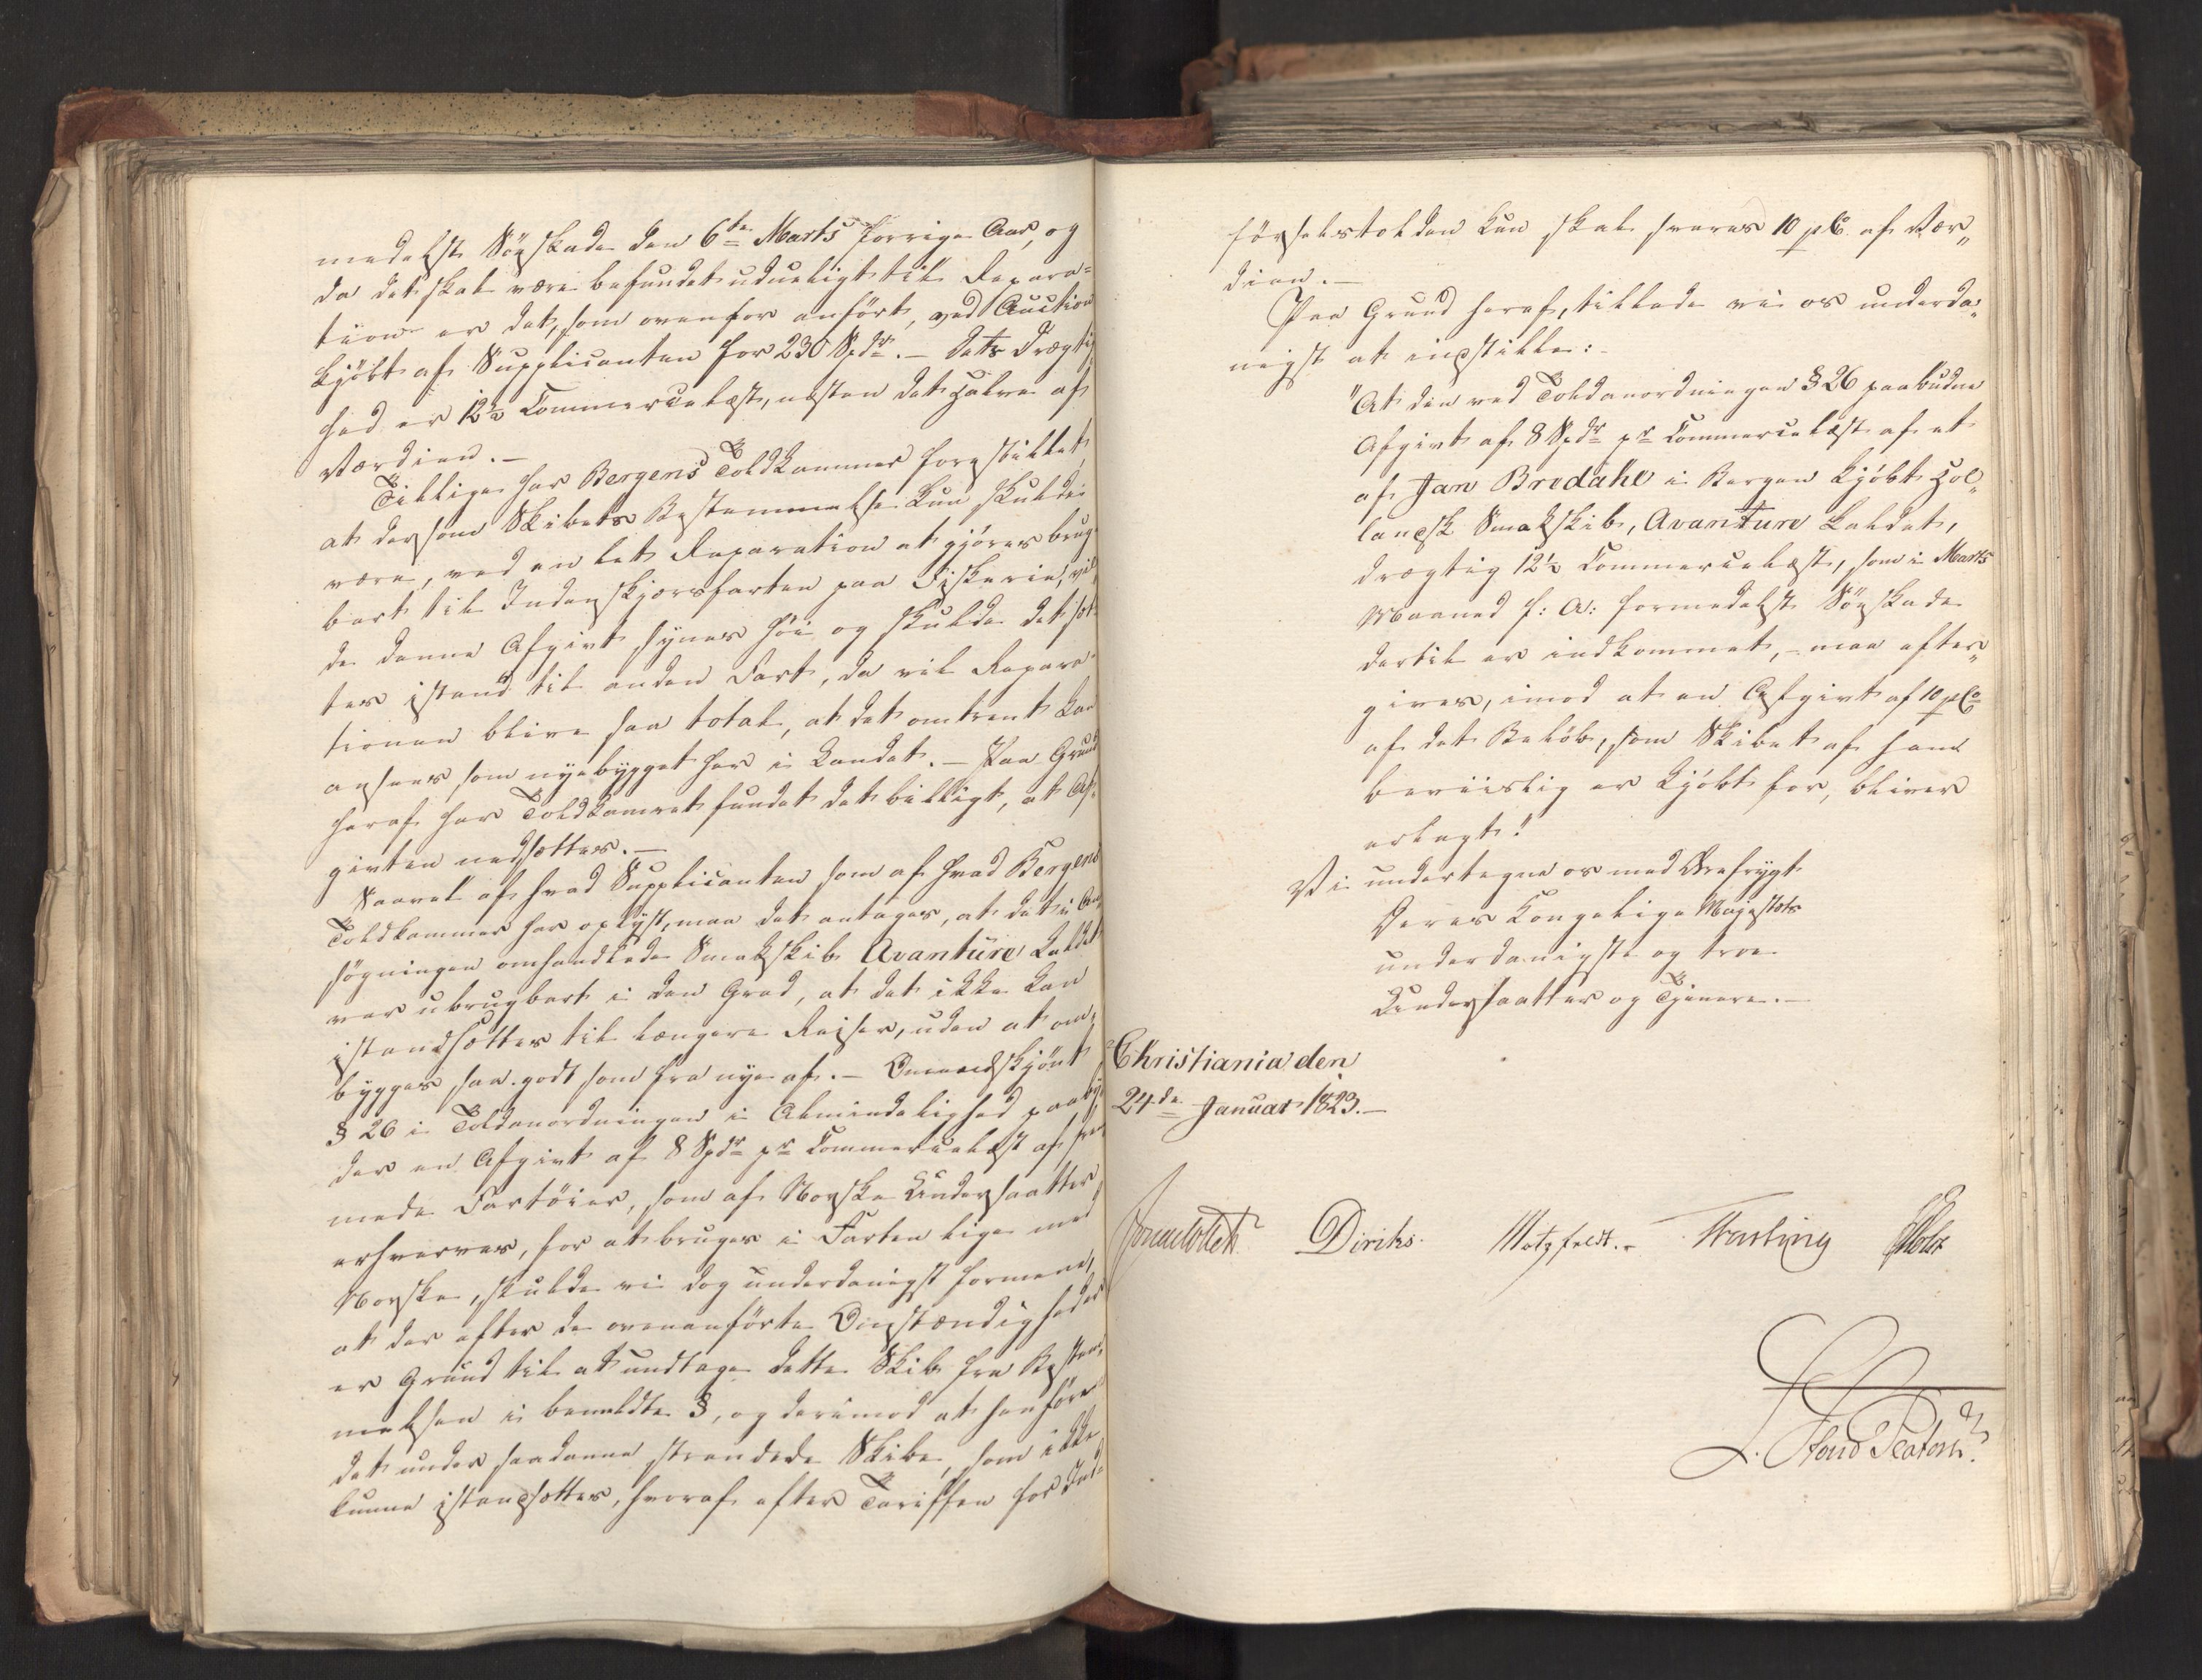 medelst Söeskade den 6te Marts forrige Aar, og
da det skal være befundet udueligt til Repara=
tion er det, som ovenfor anført, ved Auction
kjöbt af Supplicanten for 230 Spdr. – Dets Drægtig
hed er 12½ Commercelæst, næsten det halve af
Værdien. –
Tillige har Bergens Toldkammer forestillet,
at dersom Skibets Bestemmelse kun skulde
være, ved en let Reparation at gjöres brug
bart til Indenskjærsfarten paa Fiskerie, vil
de denne Afgivt synes höi og skulde det sæt
tes istand til anden Fart, da vil Repara
tionen blive saa total, at det omtrent kan
ansees som nyebygget her i Landet. – Paa Grund
heraf har Toldkamret fundet det billigt, at Af=
givten nedsættes. –
Saavel af hvad Supplicanten som af hvad Bergens
Toldkammer har oplyst, maa det antages, at det i An
søgningen omhandlede Smakskib Avanture kaldet
var ubrugbart i den Grad, at det ikke kan
istandsættes til længere Reiser, uden at om=
bygges saa godt som fra nye af. – Omendskjönt
§ 26 i Toldanordningen i Almindelighed paaby
der en Afgivt af 8 Spdr pr Commercelæst af frem
mede Fartöier, som af Norske Undersaatter
erhverves, for at bruges i Farten lige med
Norske, skulde vi dog underdanigst formene,
at der efter de ovenanförte Omstændigheder
er Grund til at undtage dette Skib fra Bestem=
melsen i bemeldte §, og derimod at henföre
det under saadanne strandede Skibe, som ikke
kunne istandsættes, hvoraf efter Tariffen for Ind=
förselstolden kun skal svares 10 pC. af Vær„
dien. –
Paa Grund heraf, tillade vi os underda„
nigst at indstille:
"At den ved Toldanordningen § 26 paabudne
Afgivt af 8 Spdr pr Commercelæst af et
af Jan Brodahl i Bergen kjöbt Hol„
landsk Smakskib, Avanture kaldet,
drægtig 12½ Commercelæst, som i Marts
Maaned f: A: formedelst Söeskade
dertil er indkommet, – maa efter„
gives, imod at en Afgivt af 10 pCo
af det Belöb, som Skibet af ham
beviislig er kjöbt for, bliver
erlagt."
Vi undertegne os med Ærefrygt
Deres Kongelige Majestæts
underdanigste og troe
Undersaatter og Tjenere. –
Christiania den
24de Januar 1823. –
Sommerhielm Diriks. Motzfeldt. Fasting Holst